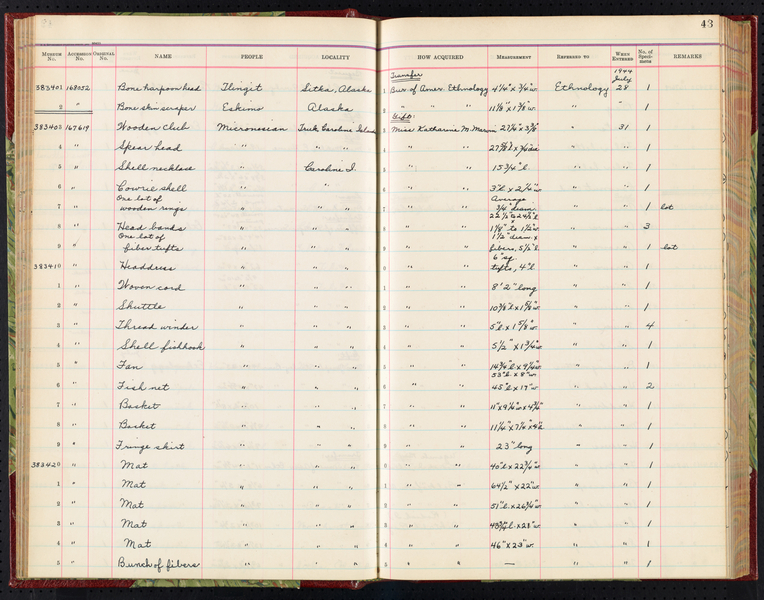 43
Museum No. Accession No. Original No. NAME PEOPLE LOCALITY HOW ACQUIRED Measurement Referred to When Entered No. of Speci-mens REMARKS
Transfer 1944 July
383401 168052 Bone harpoon head Tlingit Sitka, Alaska 1 Bur. of Amer. Ethnology 4 1/4" x 3/4"w. Ethnology 28 1
2 " Bone skin scraper Eskimo Alaska 2 " " 11 1/8" x 1 3/8"w. " " 1
Gift
383403 167619 Wooden club Micronesian Truk, Caroline Islands 3 Miss Katharine M. " 31 1
4 " Spear head " " 4 " " " " 1
5 " Shell necklace " Caroline I. 5 " " 15 3/4" l. " " 1
6 " Cowrie shell " " 6 " " 3"l x 2 1/4"w. " " 1
One lot of Average
7 " wooden rings " " " 7 " " 3/4" diam. " " 1 lot
8 " Head bands " " " 8 " " 1 1/8" to 1 1/2"w. " " 3
One lot of 1 1/2" diam. x
9 " fiber tufts " " " 9 " " fibers, 5 1/2" l. " " 1 lot
6" sq.
383410 " Headdress " " " 0 " " tufts, 4" l. " " 1
1 " Woven cord " " " 1 " " 8' 2" long " " 1
2 " Shuttle " " " 2 " " 10 3/8"l x 1 5/8"w. " " 1
3 " Thread winder " " " 3 " " 5"l. x 1 5/8"w. " " 4
4 " Shell fishhook " " " 4 " " 5 1/2" x 1 3/4"w. " " 1
5 " Fan " " " 5 " " 14 3/4"l x 9 1/4"w. " " 1
53"l. x 8"w.
6 " Fish net " " " 6 " " 45"l x 19"w. " " 2
7 " Basket " " " 7 " " 11" x 9 1/4"w x 4 3/4" " " 1
8 " Basket " " " 8 " " " " 1
9 " Fringe skirt " " " 9 " " 23" long " " 1
383420 " Mat " " " 0 " " 40"l x 22 3/4"w. " " 1
1 " Mat " " " 1 " " 64 1/2" x 22"w. " " 1
2 " Mat " " " 2 " " 51"l. x 26 3/4"w. " " 1
3 " Mat " " " 3 " " " " 1
4 " Mat " " " 4 " " 46" x 23"w. " " 1
5 " Bunch of fibers " " " 5 " " — " " 1